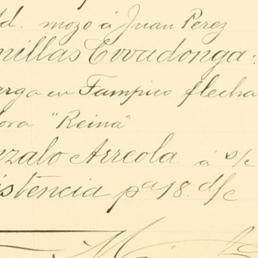 td. mozo á Juan Perez
millas Covadonga.
arga en Tampico flecha
ora "Reina"
nzalo Arreola á s/c
istencia pa 18. d/c